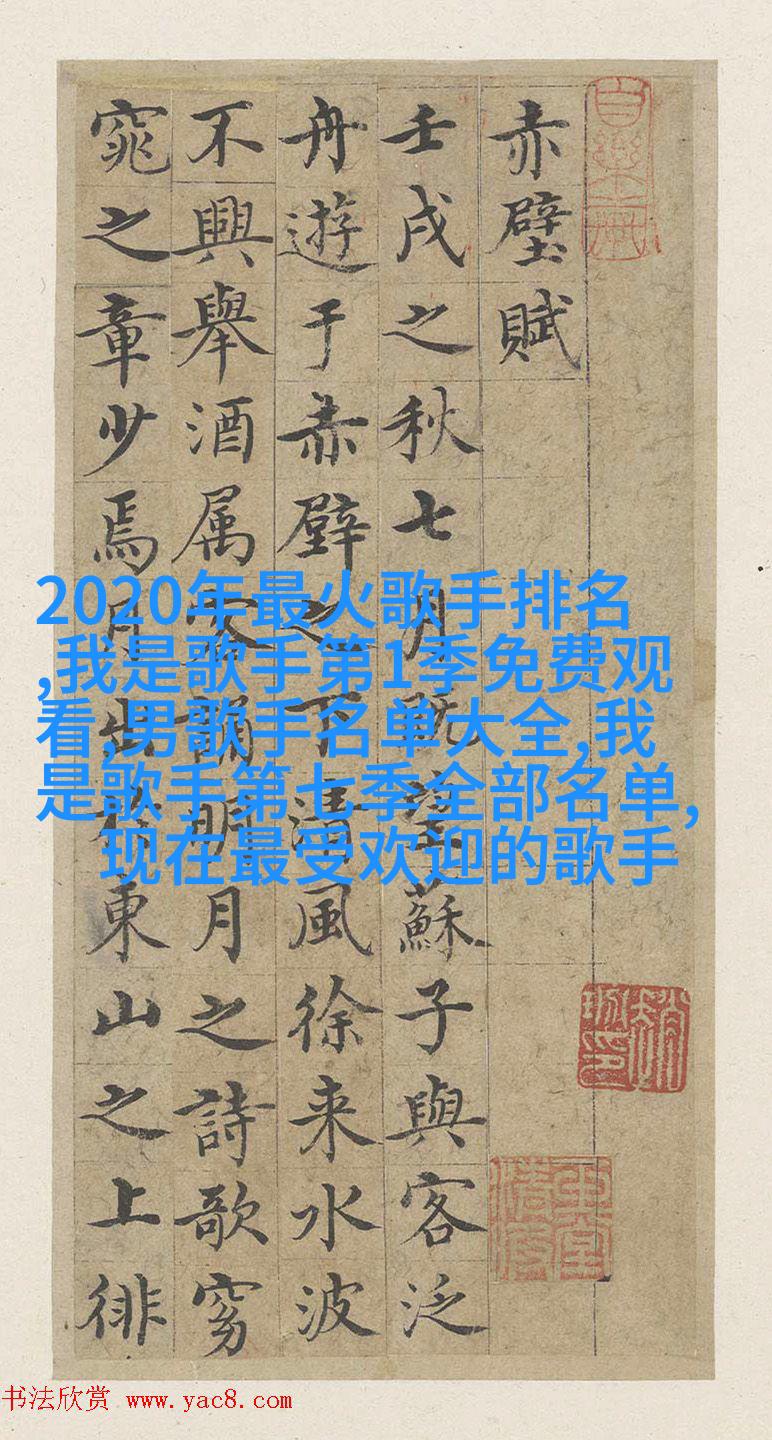 赤壁賦
壬戌之秋七月既望蘇子與客泛
舟遊于赤壁之下清風徐来水波
不興舉酒属客誦明月之詩歌窈
窕之章少焉月出於東山之上徘
2020年最火歌手排名
,我是歌手第1季免费观
看,男歌手名单大全,我
是歌手第七季全部名单,
现在最受欢迎的歌手
书法欣赏 www.yac8.com